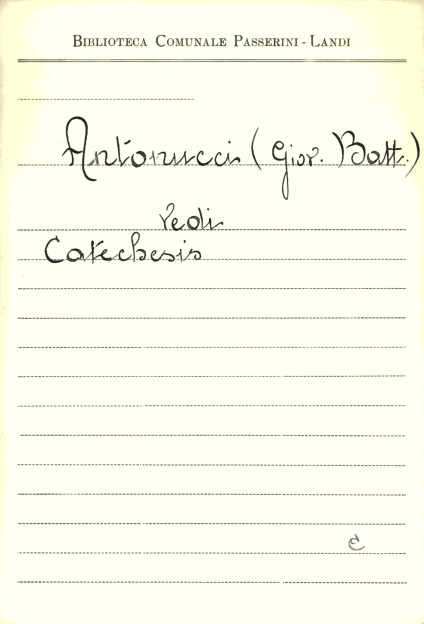 BIBLIOTECA COMUNALE PASSERINI - LANDI
Antonucci (Giov. Batt.)
Vedi
Catechesis